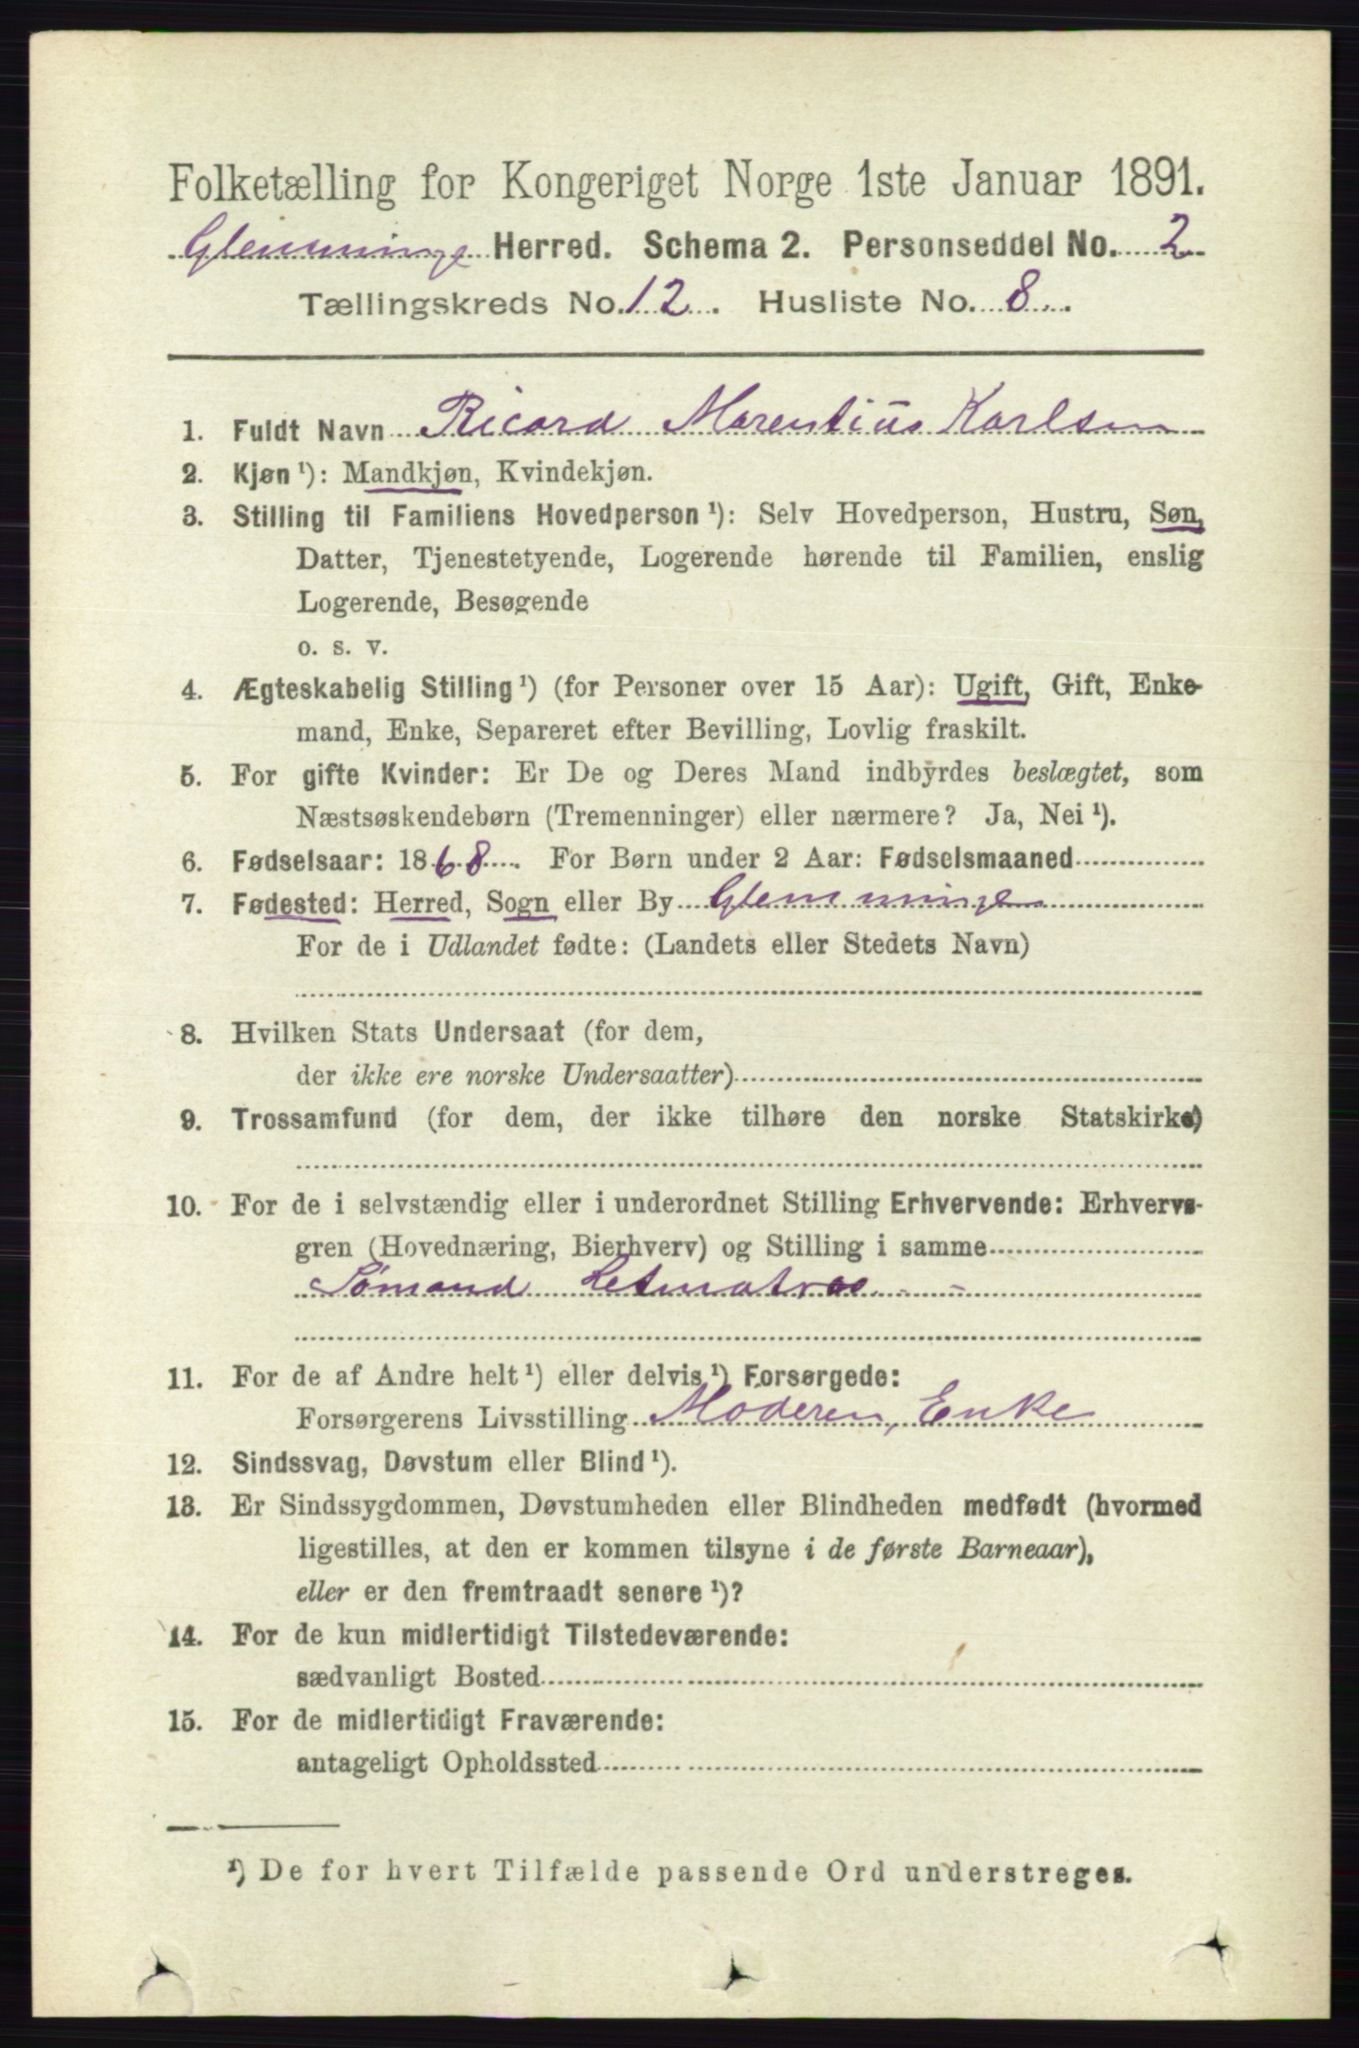 Folketælling for Kongeriget Norge 1ste Januar 1891.
Glemminge Herred. Schema 2. Personseddel No. 2
Tællingskreds No. 12. Husliste No. 8.
1. Fuldt Navn Ricard Marentius Karlsen
2. Kjøn ¹): Mandkjøn, Kvindekjøn.
3. Stilling til Familiens Hovedperson ¹): Selv Hovedperson, Hustru, Søn,
Datter, Tjenestetyende, Logerende hørende til Familien, enslig
Logerende, Besøgende
o. s. v.
4. Ægteskabelig Stilling ¹) (for Personer over 15 Aar): Ugift, Gift, Enke-
mand, Enke, Separeret efter Bevilling, Lovlig fraskilt.
5. For gifte Kvinder: Er De og Deres Mand indbyrdes beslægtet, som
Næstsøskendebørn (Tremenninger) eller nærmere? Ja, Nei ¹).
6. Fødselsaar: 1868. For Børn under 2 Aar: Fødselsmaaned
7. Fødested: Herred, Sogn eller By Glemminge
For de i Udlandet fødte: (Landets eller Stedets Navn)
8. Hvilken Stats Undersaat (for dem,
der ikke ere norske Undersaatter)
9. Trossamfund (for dem, der ikke tilhøre den norske Statskirke)
10. For de i selvstændig eller i underordnet Stilling Erhvervende: Erhvervs-
gren (Hovednæring, Bierhverv) og Stilling i samme
Sømand Letmatros
11. For de af Andre helt ¹) eller delvis ¹) Forsørgede:
Forsørgerens Livsstilling Moderen, Enke
12. Sindssvag, Døvstum eller Blind ¹).
13. Er Sindssygdommen, Døvstumheden eller Blindheden medfødt (hvormed
ligestilles, at den er kommen tilsyne i de første Barneaar),
eller er den fremtraadt senere ¹)?
14. For de kun midlertidigt Tilstedeværende:
sædvanligt Bosted
15. For de midlertidigt Fraværende:
antageligt Opholdssted
¹) De for hvert Tilfælde passende Ord understreges.